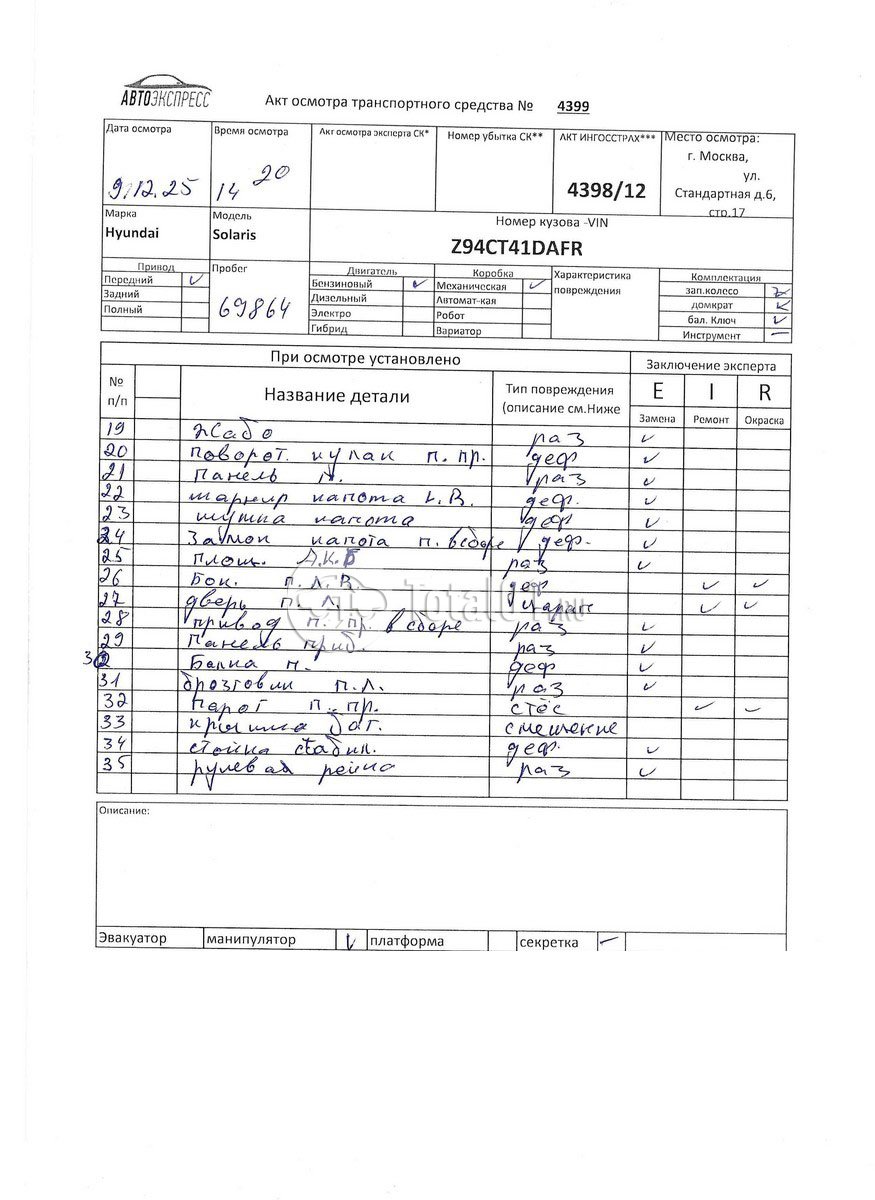 АВТОЭКСПРЕСС
Акт осмотра транспортного средства № 4399
Дата осмотра Время осмотра Акт осмотра эксперта СК* Номер убытка СК** АКТ ИНГОССТРАХ*** Место осмотра:
г. Москва,
ул.
9.12.25 14 20 4398/12 Стандартная д.6,
стр.17
Марка Модель Номер кузова -VIN
Hyundai Solaris Z94CT41DAFR
Привод Пробег Двигатель Коробка Характеристика повреждения Комплектация
Передний ✓ 69864 Бензиновый ✓ Механическая ✓ зап.колесо ✓
Задний Дизельный Автомат-кая домкрат ✓
Полный Электро Робот бал. Ключ ✓
Гибрид Вариатор Инструмент —
При осмотре установлено Заключение эксперта
№ п/п Название детали Тип повреждения (описание см.Ниже E I R
Замена Ремонт Окраска
19 Жабо раз ✓
20 поворот. кулак п. пр. деф ✓
21 Панель п. раз ✓
22 шарнир капота L.R. деф. ✓
23 шумка капота деф ✓
24 Замок капота п. в сборе деф. ✓
25 площ. А.К.Б раз ✓
26 Бок. п. л. В. деф ✓ ✓
27 дверь п. л. царап ✓ ✓
28 привод п. пр. в сборе раз ✓
29 Панель приб. раз ✓
30 Балка п. деф ✓
31 брозговик п. л. раз ✓
32 Парог п. пр. стёс ✓ ✓
33 крышка баг. смешение
34 стойка стабил. деф. ✓
35 рулевая рейка раз ✓
Описание:
Эвакуатор манипулятор ✓ платформа секретка —
Total01.RU